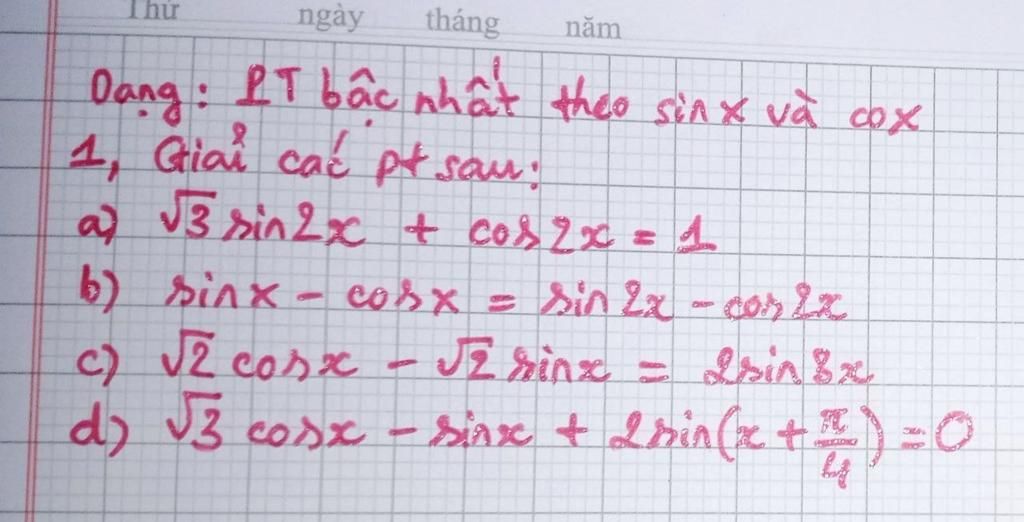 Thứ ngày tháng năm
Dạng: PT bậc nhất theo sinx và cox
1, Giải các pt sau:
a) √3 sin2x + cos2x = 1
b) sinx - cosx = sin2x - cos2x
c) √2 cosx - √2 sinx = 2sin3x
d) √3 cosx - sinx + 2sin(x + π/4) = 0